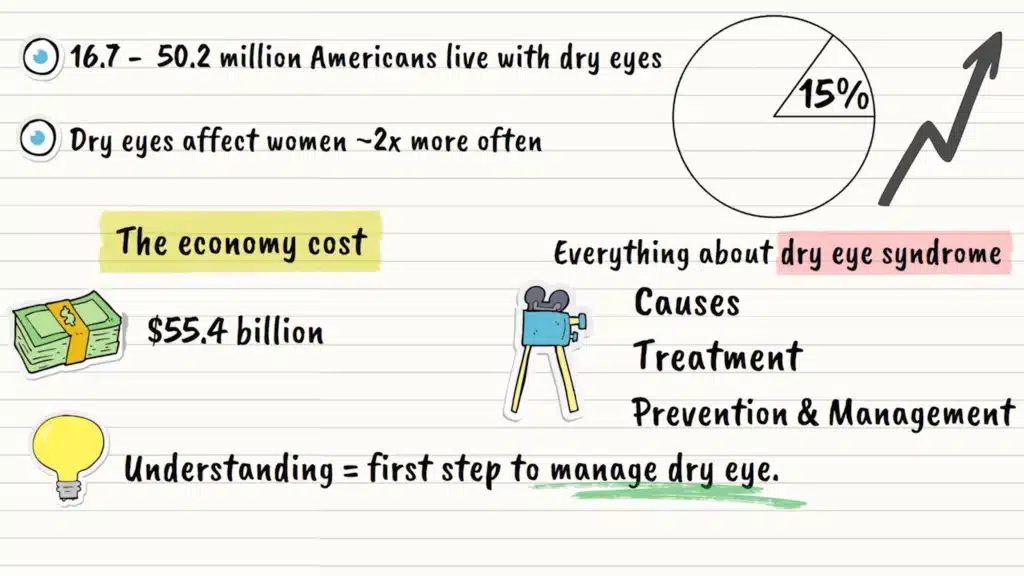 16.7 - 50.2 million Americans live with dry eyes
15%
Dry eyes affect women ~2x more often
The economy cost
$55.4 billion
Everything about dry eye syndrome
Causes
Treatment
Prevention & Management
Understanding = first step to manage dry eye.